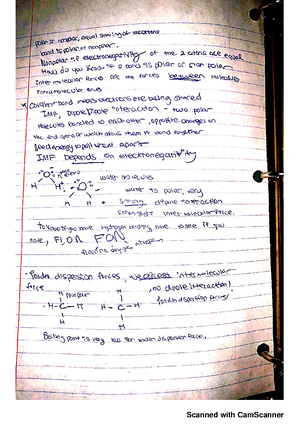 polar or nonpolar, equal sharing of electrons
bond is polar or nonpolar.
Nonpolar if electronegativity of the 2 atoms are equal
How do you know if a bond is polar or non polar
inter molecular forces are the forces between molecules
* Covalent bond means electrons are being shared
IMF, Dipole Dipole interaction - two polar
molecules bonded to each other, opposite charges on
the end of each which allows them to bond together
Need energy to pull them apart
IMF Depends on electronegativity
water molecules
H H O
water is polar, very
H H + strong dipole interaction
strongest intermolecular force.
To know if you have hydrogen bonding have to see if you
have, F, O, N FON
fluorine oxygen nitrogen
London dispersion forces, weakest intermolecular
force
H nonpolar H , no dipole interaction)
H - C - H H - C - H London dispersion forces
H H
Boiling point is very low for london dispersion force.
Scanned with CamScanner